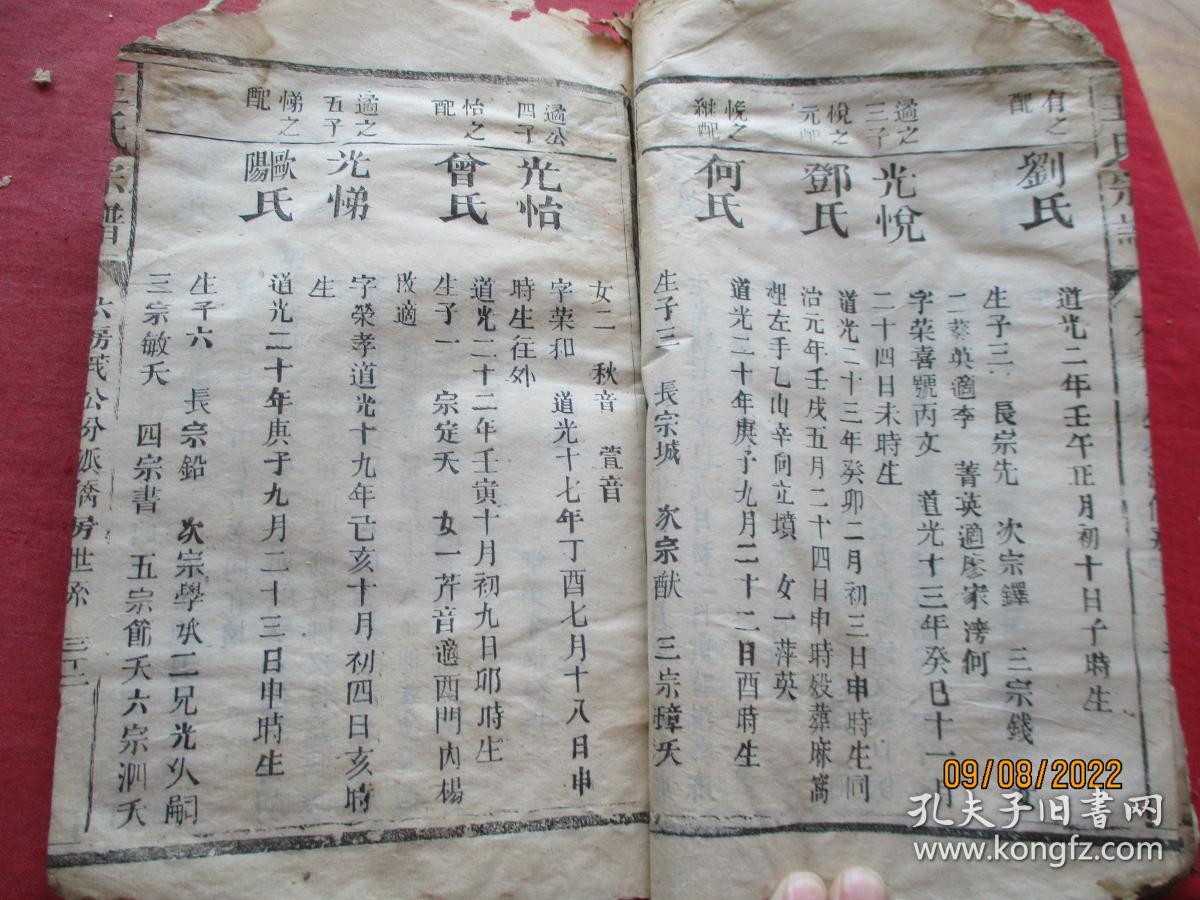 氏宗譜
有之配
劉氏
道光二年壬午正月初十日子時生
生子三 長宗先 次宗鐸 三宗錢
二蔡英適李 菁英適廖家灣何
適之三子
光悅
字荣喜號丙文 道光十三年癸巳十一月
二十四日未時生
悅之元配
鄧氏
道光二十三年癸卯二月初三日申時生同
治元年壬戌五月二十四日申時歿葬麻窩
裡左手乙山辛向立墳 女一萍英
悅之繼配
何氏
道光二十年庚子九月二十二日酉時生
生子三 長宗城 次宗猷 三宗璋夭
女二 秋音 萱音
適公四子
光怡
字葉和 道光十七年丁酉七月十八日申
時生往外
怡之配
曾氏
道光二十二年壬寅十月初九日卯時生
生子一 宗定夭 女一芹音適西門內楊
改適
適之五子
光悌
字榮孝道光十九年己亥十月初四日亥時
生
悌之配
歐陽氏
道光二十年庚子九月二十三日申時生
生子六 長宗鉛 次宗學承二兄光久嗣
三宗敏夭 四宗書 五宗節夭六宗泗夭
氏宗譜
六房 公分派 房世系
三十二
09/08/2022
孔夫子旧书网
www.kongfz.com